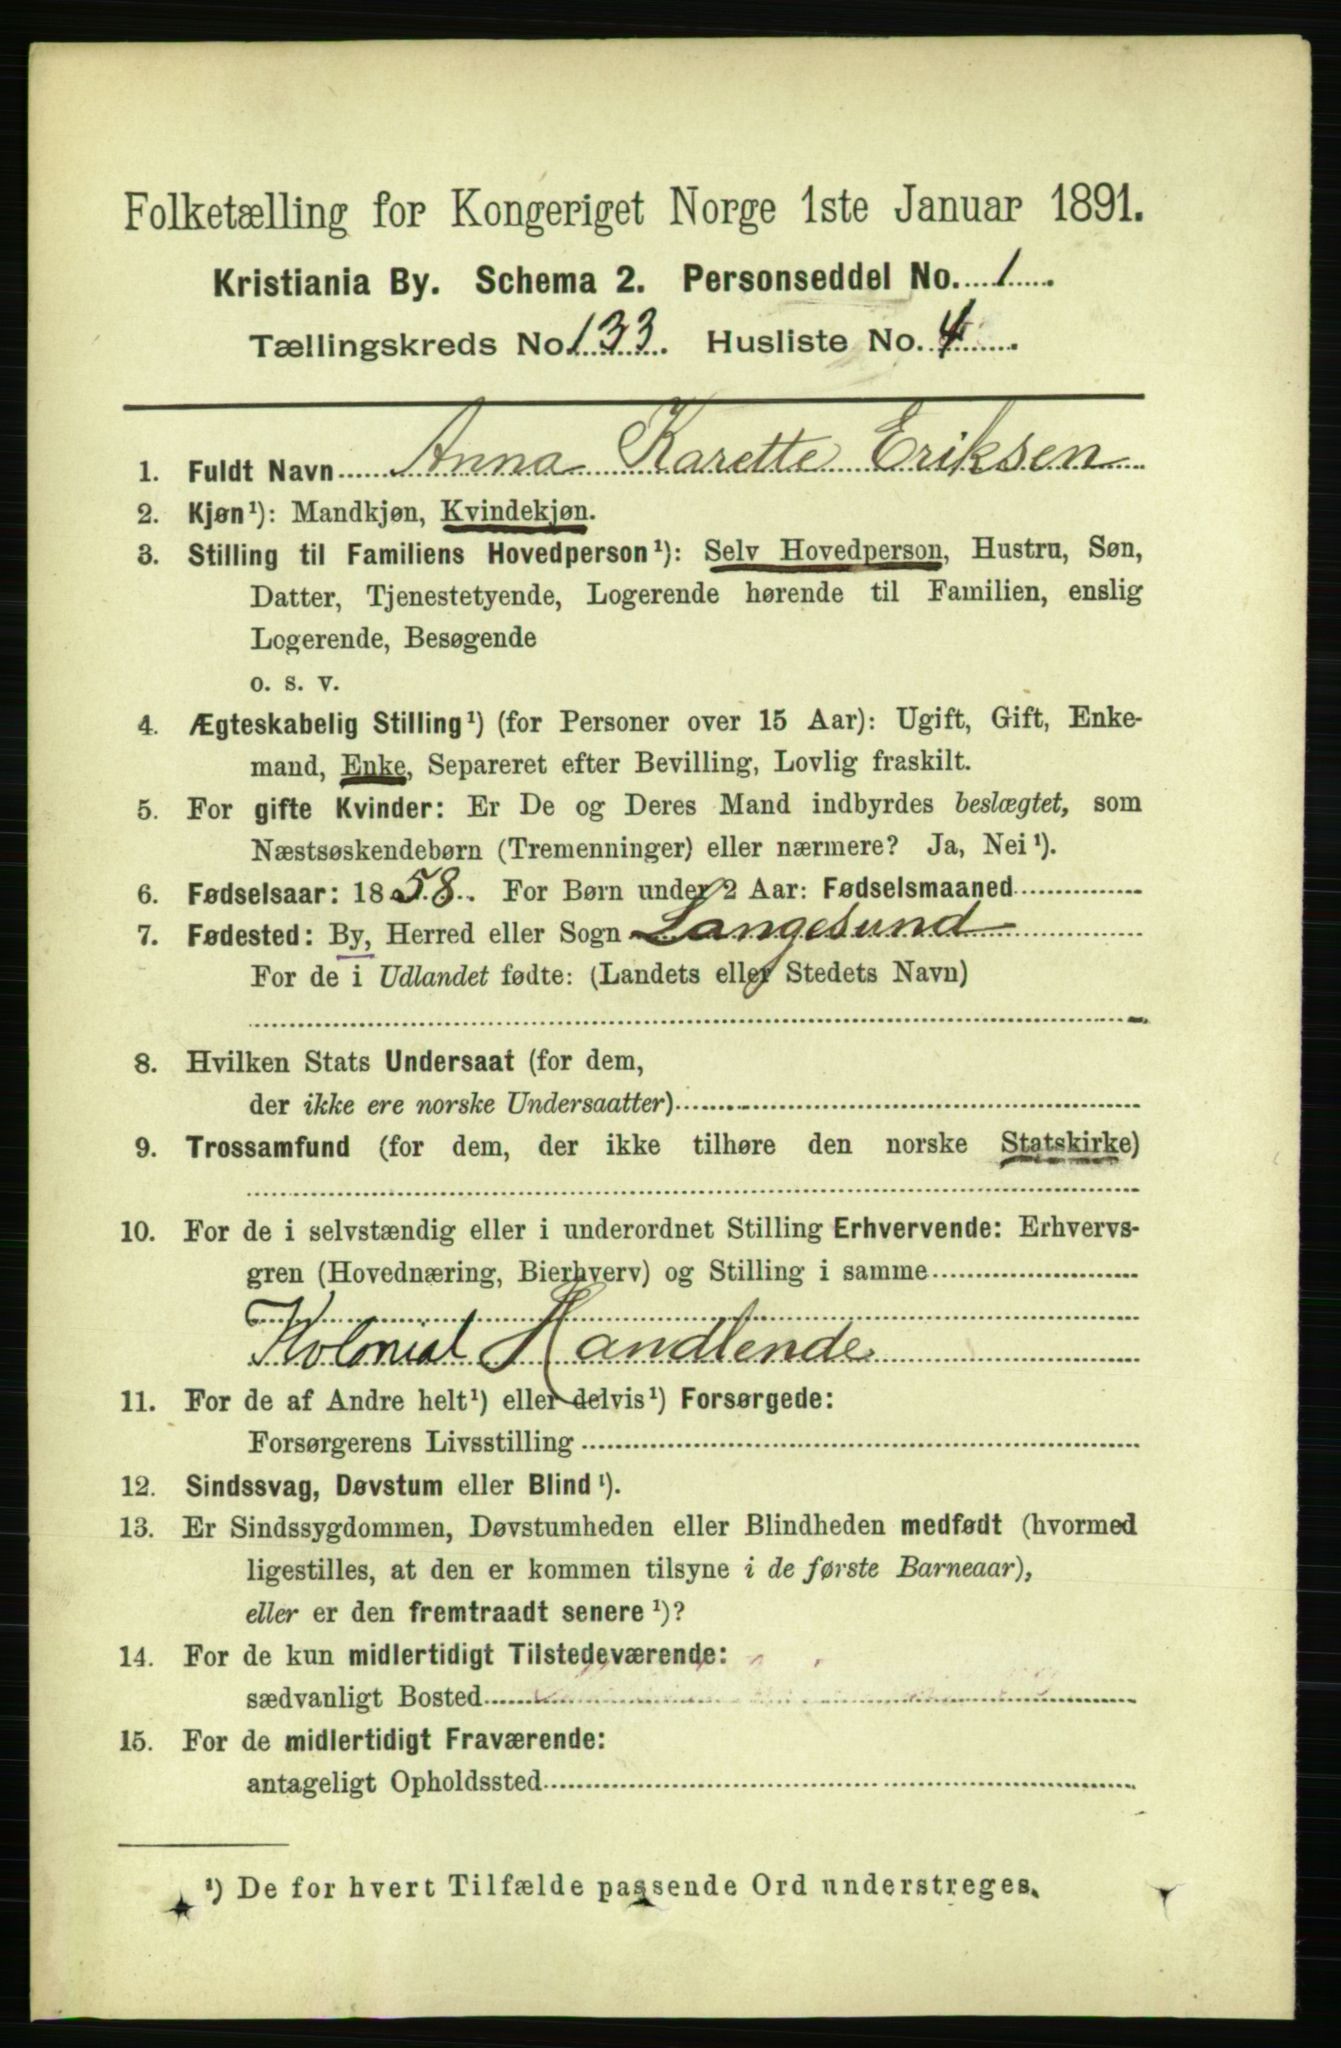 Folketælling for Kongeriget Norge 1ste Januar 1891.
Kristiania By. Schema 2. Personseddel No. 1
Tællingskreds No. 133. Husliste No. 4
1. Fuldt Navn Anna Karette Eriksen
2. Kjøn¹): Mandkjøn, Kvindekjøn.
3. Stilling til Familiens Hovedperson¹): Selv Hovedperson, Hustru, Søn,
Datter, Tjenestetyende, Logerende hørende til Familien, enslig
Logerende, Besøgende
o. s. v.
4. Ægteskabelig Stilling¹) (for Personer over 15 Aar): Ugift, Gift, Enke-
mand, Enke, Separeret efter Bevilling, Lovlig fraskilt.
5. For gifte Kvinder: Er De og Deres Mand indbyrdes beslægtet, som
Næstsøskendebørn (Tremenninger) eller nærmere? Ja, Nei¹).
6. Fødselsaar: 1858. For Børn under 2 Aar: Fødselsmaaned
7. Fødested: By, Herred eller Sogn Langesund
For de i Udlandet fødte: (Landets eller Stedets Navn)
8. Hvilken Stats Undersaat (for dem,
der ikke ere norske Undersaatter)
9. Trossamfund (for dem, der ikke tilhøre den norske Statskirke)
10. For de i selvstændig eller i underordnet Stilling Erhvervende: Erhvervs-
gren (Hovednæring, Bierhverv) og Stilling i samme
Kolonial Handlende
11. For de af Andre helt¹) eller delvis¹) Forsørgede:
Forsørgerens Livsstilling
12. Sindssvag, Døvstum eller Blind¹).
13. Er Sindssygdommen, Døvstumheden eller Blindheden medfødt (hvormed
ligestilles, at den er kommen tilsyne i de første Barneaar),
eller er den fremtraadt senere¹)?
14. For de kun midlertidigt Tilstedeværende:
sædvanligt Bosted
15. For de midlertidigt Fraværende:
antageligt Opholdssted
¹) De for hvert Tilfælde passende Ord understreges.